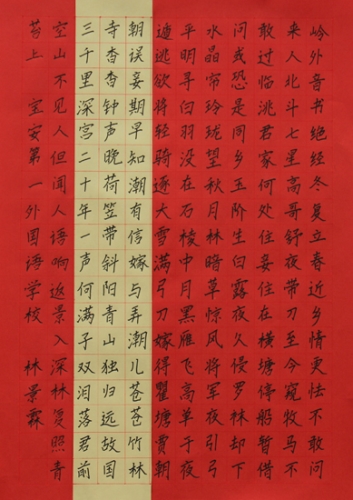 岭外音书绝经冬复立春近乡情更怯不敢问
来人北斗七星高哥舒夜带刀至今窥牧马不
敢过临洮君家何处住妾住在横塘停船暂借
问或恐是同乡玉阶生白露夜久侵罗袜却下
水晶帘玲珑望秋月林暗草惊风将军夜引弓
平明寻白羽没在石棱中月黑雁飞高单于夜
遁逃欲将轻骑逐大雪满弓刀嫁得瞿塘贾朝
朝误妾期早知潮有信嫁与弄潮儿苍苍竹林
寺杳杳钟声晚荷笠带斜阳青山独归远故国
三千里深宫二十年一声何满子双泪落君前
空山不见人但闻人语响返景入深林复照青
苔上 宝安第一外国语学校 林景霖